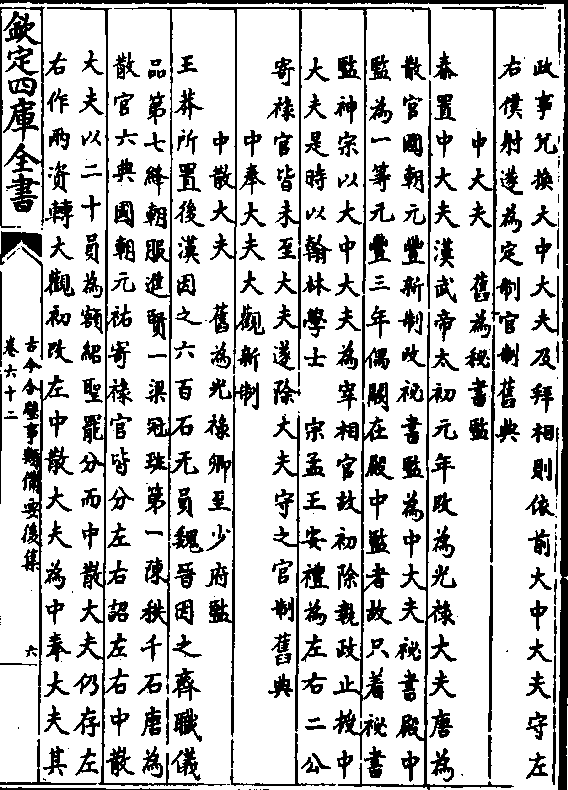 政事兄換大中大夫及拜相則依前大中大夫守左
右僕射遂為定制官制舊典
中大夫　舊為秘書監
秦置中大夫漢武帝太初元年改為光禄大夫唐為
散官國朝元豐新制改祕書監為中大夫祕書殿中
監為一等元豐三年偶闕在殿中監者故只著祕書
監神宗以大中大夫為宰相官故初除執政止授中
大夫是時以翰林學士　宗孟王安禮為左右二公
寄禄官皆未至大夫遂除大夫守之官制舊典
中奉大夫大觀新制
中散大夫　舊為光禄卿至少府監
王莽所置後漢因之六百石无員魏晉因之齊職儀
品第七絳朝服進賢一梁冠班第一陳秩千石唐為
散官六典國朝元祐寄禄官皆分左右詔左右中散
大夫以二十員為額紹聖罷分而中散大夫仍存左
右作兩資轉大觀初改左中散大夫為中奉大夫其
欽定四庫全書
古今合璧事類備要後集
卷六十二
六